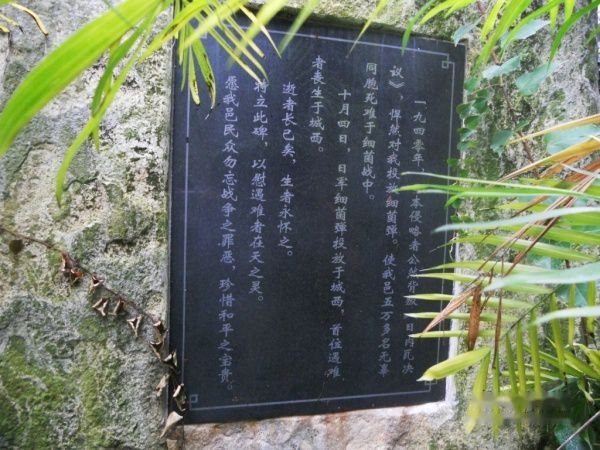 一九四零年，本侵略者公然背叛《日内瓦决
议》，悍然对我投放细菌弹。使我邑五万多名无辜
同胞死难于细菌战中。
十月四日，日军细菌弹投放于城西，首位遇难
者丧生于城西。
逝者长已矣，生者永怀之。
特立此碑，以慰遇难者在天之灵。
愿我邑民众勿忘战争之罪恶，珍惜和平之宝贵。